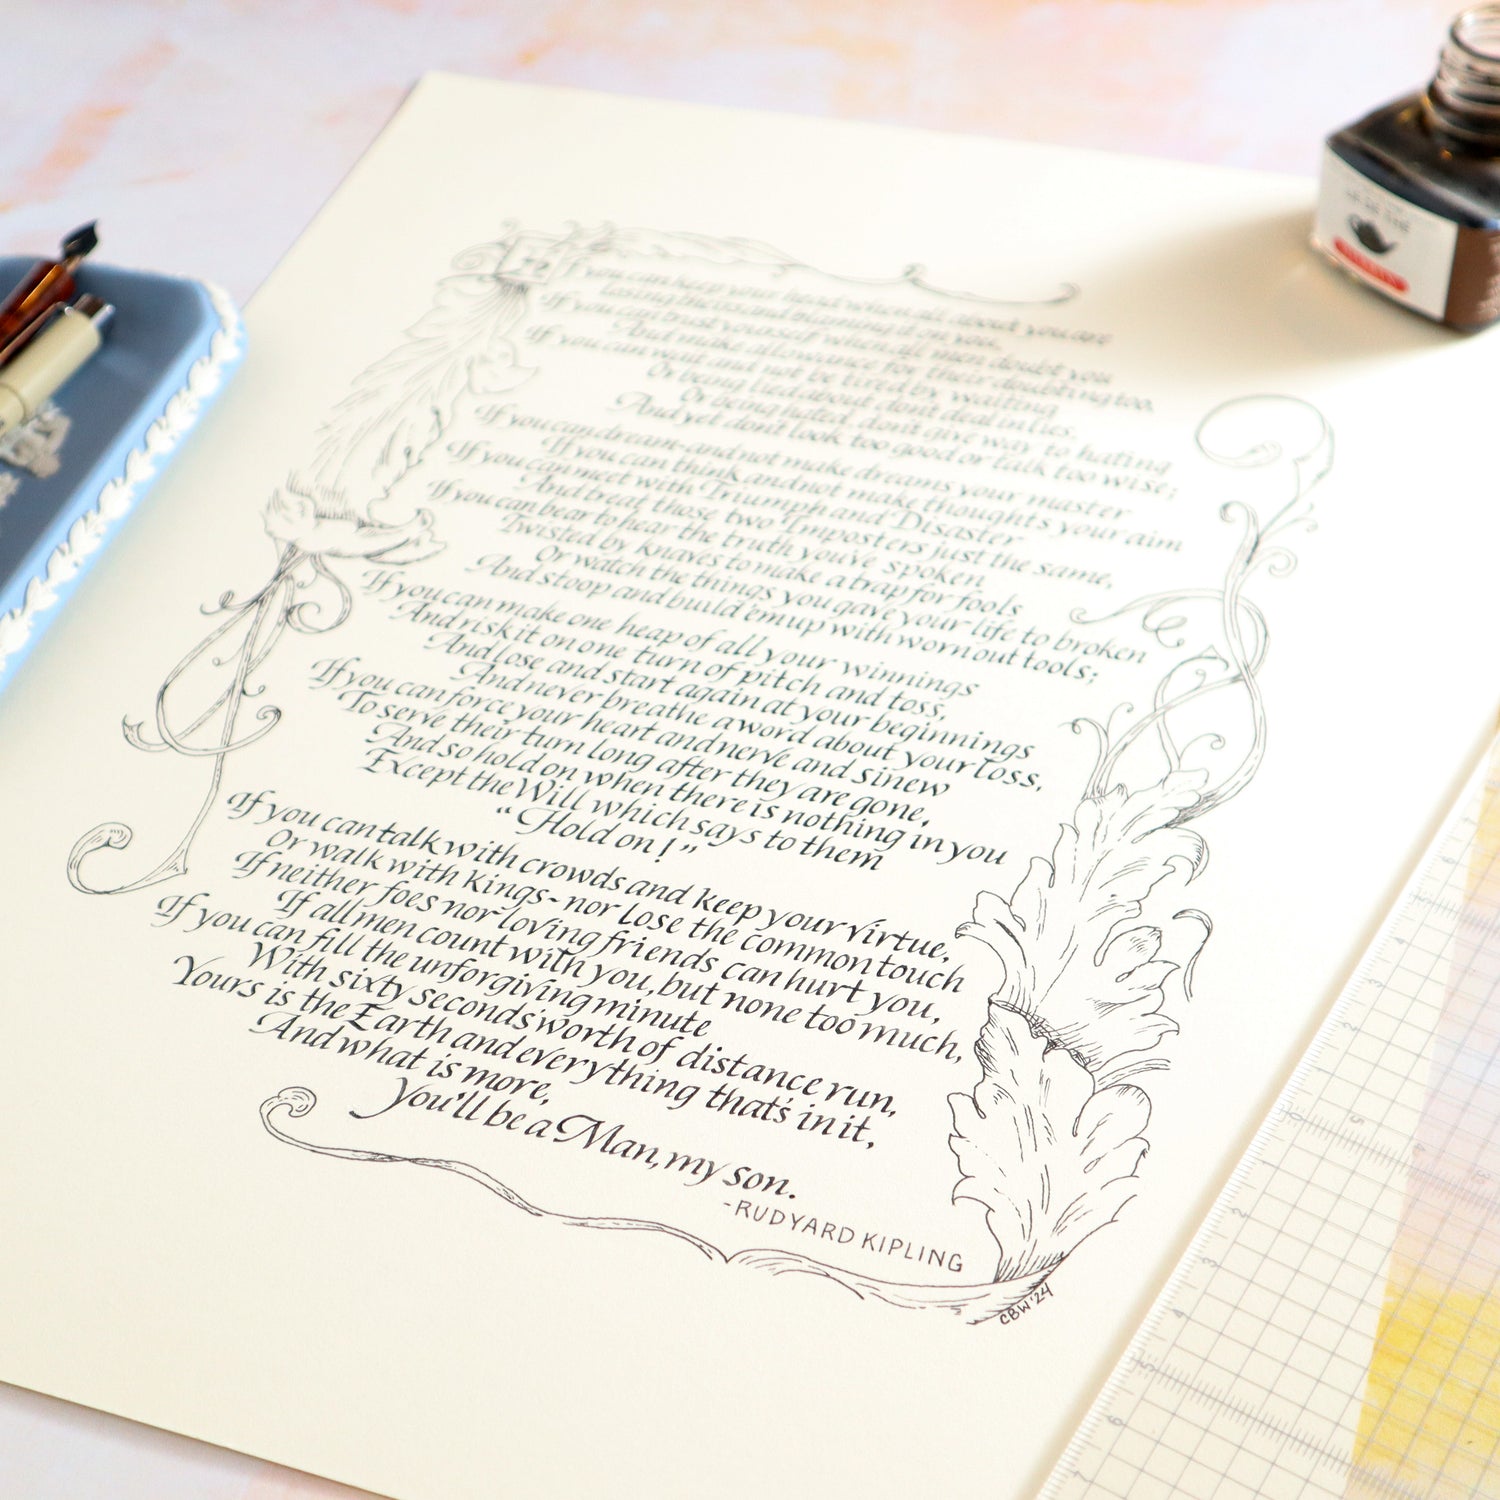 If you can keep your head when all about you are
losing theirs and blaming it on you,
If you can trust yourself when all men doubt you
And make allowance for their doubting too.
If you can wait and not be tired by waiting
Or being lied about don't deal in lies.
Or being hated, don't give way to hating
And yet don't look too good or talk too wise;
If you can dream - and not make dreams your master
If you can think and not make thoughts your aim
If you can meet with Triumph and Disaster
And treat those two Imposters just the same,
If you can bear to hear the truth you've spoken
Twisted by knaves to make a trap for fools
Or watch the things you gave your life to broken
And stoop and build 'em up with worn out tools;
If you can make one heap of all your winnings
And risk it on one turn of pitch and toss,
And lose and start again at your beginnings
And never breathe a word about your loss,
If you can force your heart and nerve and sinew
To serve their turn long after they are gone,
And so hold on when there is nothing in you
Except the Will which says to them
"Hold on!"
If you can talk with crowds and keep your virtue,
Or walk with kings - nor lose the common touch
If neither foes nor loving friends can hurt you,
If all men count with you, but none too much,
If you can fill the unforgiving minute
With sixty seconds' worth of distance run,
Yours is the Earth and everything that's in it,
And what is more,
You'll be a Man, my son.
-RUDYARD KIPLING
CBW '24